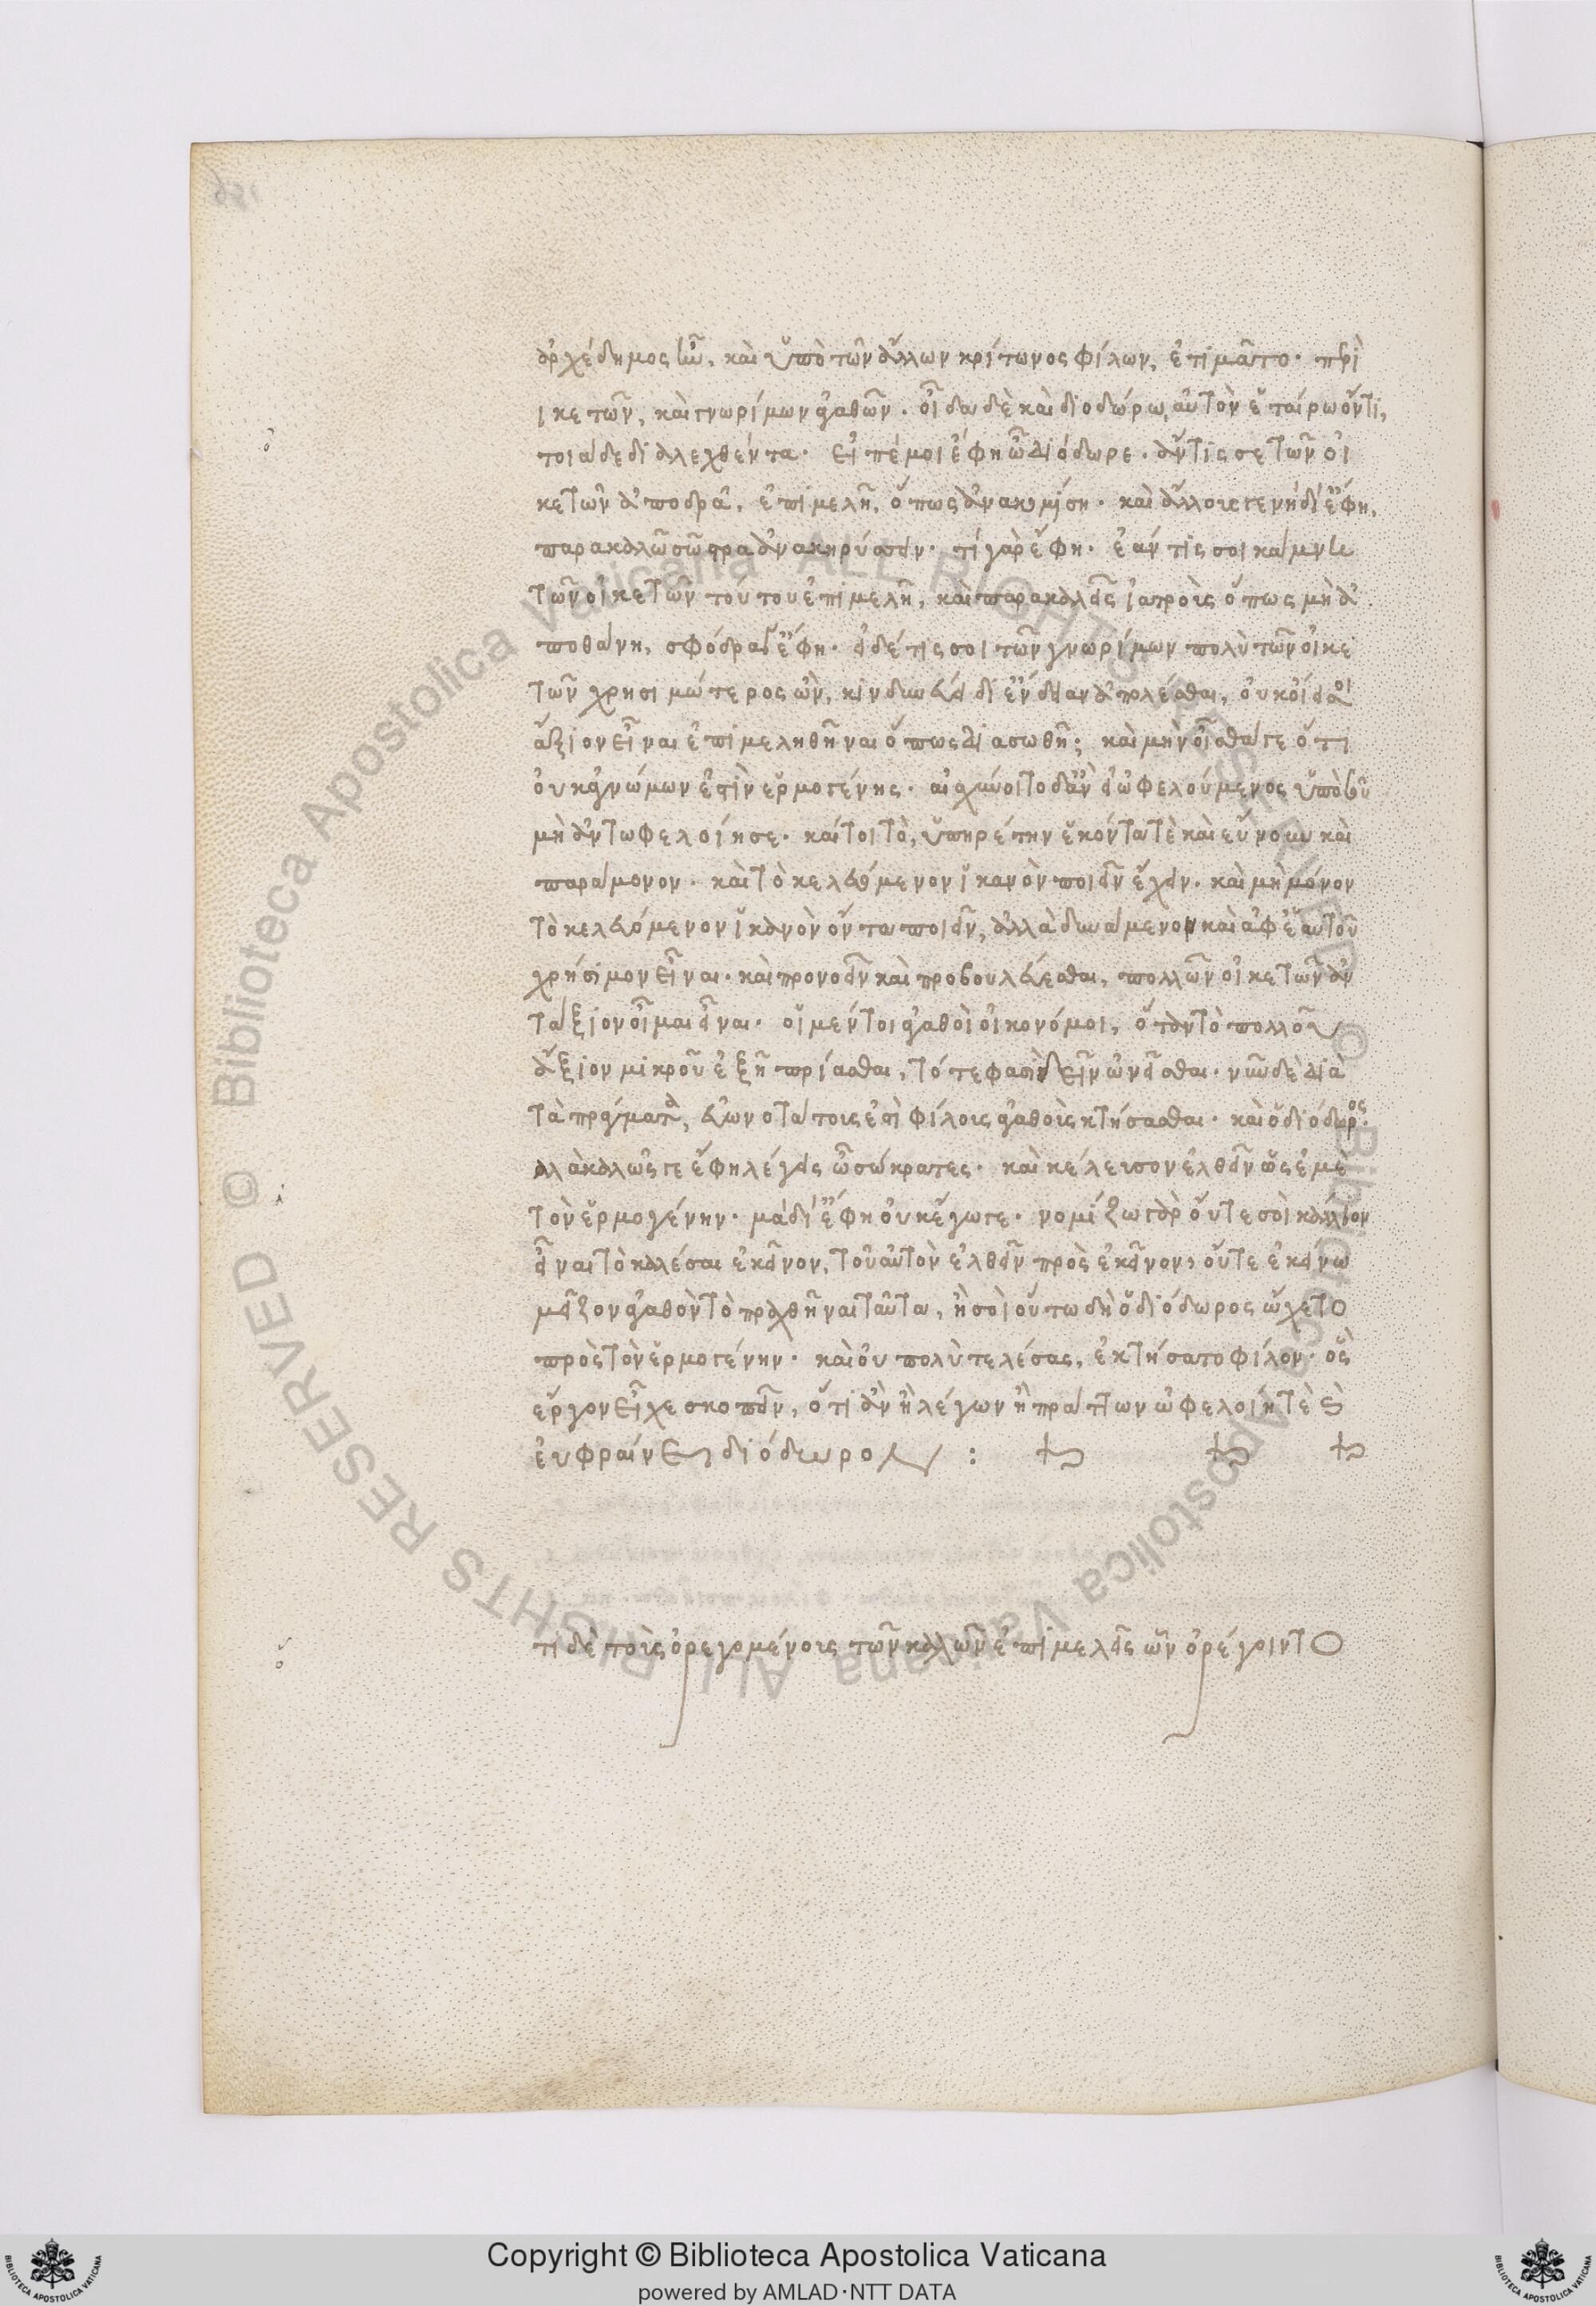 ἀρχέδημος ἦν, καὶ ὑπὸ τῶν ἄλλων κρίτωνος φίλων, ἐτιμᾶτο· περὶ
ικετῶν, καὶ γνωρίμων ἀγαθῶν. οἶδα δὲ καὶ διοδώρω, αὐτὸν ἑταίρω ὄντι,
τοιάδε διαλεχθέντα. εἰπέ μοι ἔφη ὦ διόδωρε. ἄν τίς σε τῶν οἰ
κετῶν ἀποδρᾶ, ἐπιμελῆ, ὅπως ἀνακομίση. καὶ ἄλλους γε νὴ δί' ἔφη,
παρακαλῶ σῶστρα ἀνακηρύσσειν. τί γὰρ ἔφη. ἐάν τις σοι κάμνη
τῶν οἰκετῶν τούτου ἐπιμελῆ, καὶ παρακαλεῖς ἰατροὺς ὅπως μὴ ἀ
ποθάνη, σφόδρα γ' ἔφη. εἰ δέ τις σοι τῶν γνωρίμων πολὺ τῶν οἰκε
τῶν χρησιμώτερος ὢν, κινδυνεύει δι' ἔνδειαν ἀπολέσθαι, οὐκ οἴει σοι
ἄξιον εἶναι ἐπιμεληθῆναι ὅπως διασωθῆ; καὶ μὴν οἶσθά γε ὅτι
οὐκ ἀγνώμων ἐστὶν ἑρμογένης. αἰσχύνοιτο δ' ἂν εἰ ὠφελούμενος ὑπὸ σοῦ
μὴ ἀντωφελοίη σε. καίτοι τὸ, ὑπηρέτην ἑκόντα τὲ καὶ εὔνουν καὶ
παράμονον. καὶ τὸ κελευόμενον ἱκανὸν ποιεῖν ἔχειν. καὶ μὴ μόνον
τὸ κελευόμενον ἱκανὸν ὄντα ποιεῖν, ἀλλὰ δυνάμενον καὶ ἀφ' ἑαυτοῦ
χρήσιμον εἶναι. καὶ προνοεῖν καὶ προβουλεύεσθαι, πολλῶν οἰκετῶν ἀν
τάξιον οἶμαι εἶναι. οἱ μέντοι ἀγαθοὶ οἰκονόμοι, ὅταν τὸ πολλοῦ
ἄξιον μικροῦ ἐξῆ πρίασθαι, τότε φασὶ δεῖν ὠνεῖσθαι. νῦν δὲ διὰ
τὰ πράγματα, εὐωνοτάτους ἐστὶ φίλους ἀγαθοὺς κτήσασθαι. καὶ ὁ διόδωρος.
ἀλλὰ καλῶς γε ἔφη λέγεις ὦ σώκρατες. καὶ κέλευσον ἐλθεῖν ὡς ἐμὲ
τὸν ἑρμογένην. μὰ δί' ἔφη οὐκ ἔγωγε. νομίζω γὰρ οὔτε σοὶ κάλλιον
εἶναι τὸ καλέσαι ἐκεῖνον, τοῦ αὐτὸν ἐλθεῖν πρὸς ἐκεῖνον, οὔτε ἐκείνω
μεῖζον ἀγαθὸν τὸ πραχθῆναι ταῦτα, ἢ σοὶ οὕτω δὴ ὁ διόδωρος ὤχετο
πρὸς τὸν ἑρμογένην. καὶ οὐ πολὺ τελέσας, ἐκτήσατο φίλον. ὃς
ἔργον εἶχε σκοπεῖν, ὅτι ἂν ἢ λέγων ἢ πράττων ὠφελοίη τὲ καὶ
εὐφραίνει διόδωρον :
τι δὲ τοὺς ὀρεγομένους τῶν καλῶν ἐπιμελεῖς ὧν ὀρέγοιντο